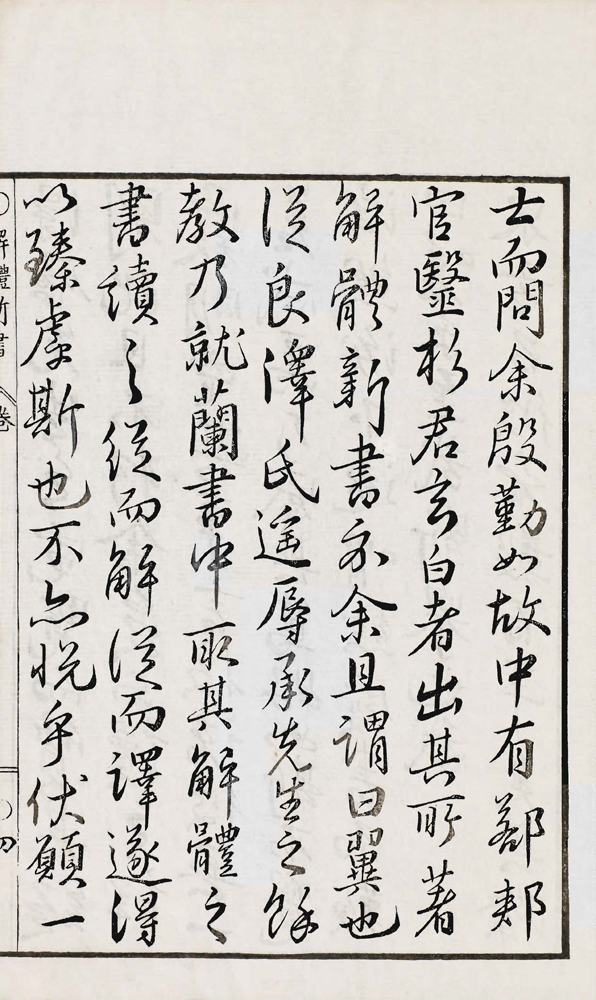 士而問余殷勤如故中有鄀郟
官醫杉君玄白者出其所著
解體新書示余且謂曰翼也
從良澤氏遥辱承先生之餘
教乃就蘭書中取其解體之
書讀之從而解從而譯遂得
以臻虖斯也不亦悅乎伏願一
〇解體新書 卷 〇四